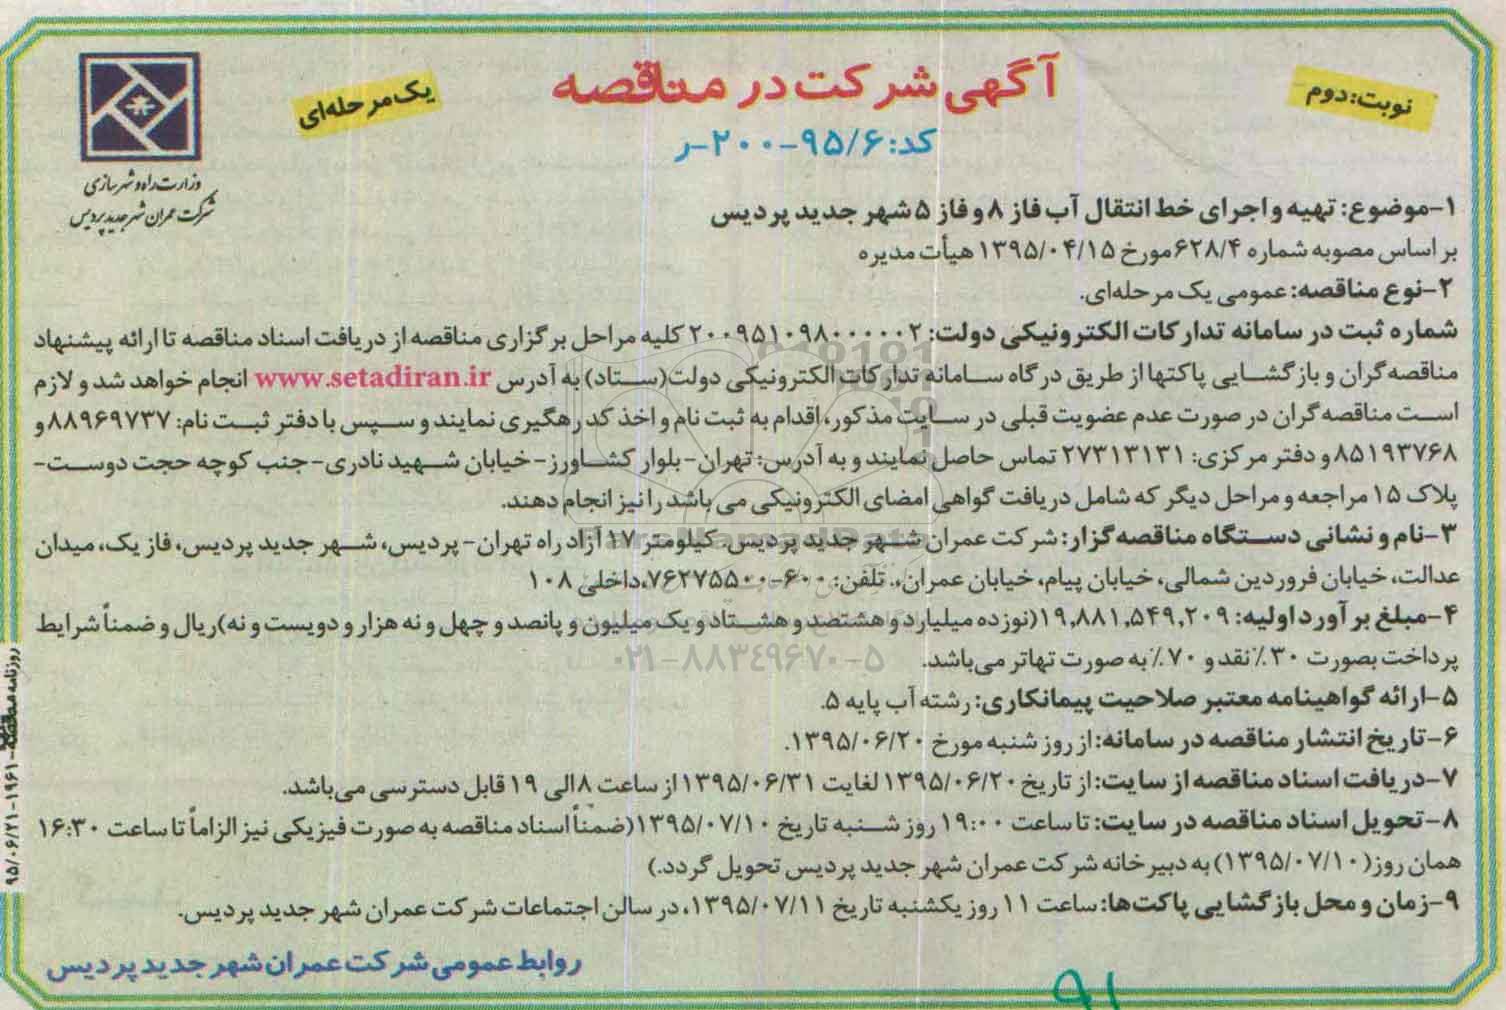 نوبت: دوم
آگهی شرکت در مناقصه
یک مرحله‌ای
کد: ۹۵/۶-۲۰۰-ر
وزارت راه و شهرسازی
شرکت عمران شهر جدید پردیس
۱-موضوع: تهیه و اجرای خط انتقال آب فاز ۸ و فاز ۵ شهر جدید پردیس
بر اساس مصوبه شماره ۶۲۸/۴ مورخ ۱۳۹۵/۰۴/۱۵ هیأت مدیره
۲-نوع مناقصه: عمومی یک مرحله‌ای.
شماره ثبت در سامانه تدارکات الکترونیکی دولت: ۲۰۰۹۵۱۰۹۸۰۰۰۰۰۲ کلیه مراحل برگزاری مناقصه از دریافت اسناد مناقصه تا ارائه پیشنهاد
مناقصه گران و بازگشایی پاکتها از طریق درگاه سامانه تدارکات الکترونیکی دولت(ستاد) به آدرس www.setadiran.ir انجام خواهد شد و لازم
است مناقصه گران در صورت عدم عضویت قبلی در سایت مذکور، اقدام به ثبت نام و اخذ کد رهگیری نمایند و سپس با دفتر ثبت نام: ۸۸۹۶۹۷۳۷ و
۸۵۱۹۳۷۶۸ و دفتر مرکزی: ۲۷۳۱۳۱۳۱ تماس حاصل نمایند و به آدرس: تهران- بلوار کشاورز- خیابان شهید نادری- جنب کوچه حجت دوست-
پلاک ۱۵ مراجعه و مراحل دیگر که شامل دریافت گواهی امضای الکترونیکی می باشد را نیز انجام دهند.
۳-نام و نشانی دستگاه مناقصه گزار: شرکت عمران شهر جدید پردیس. کیلومتر ۱۷ آزاد راه تهران- پردیس، شهر جدید پردیس، فاز یک، میدان
عدالت، خیابان فروردین شمالی، خیابان پیام، خیابان عمران،. تلفن: ۶۰۰-۷۶۲۷۵۵۰۰،داخلی ۱۰۸
۴-مبلغ برآورد اولیه: ۱۹,۸۸۱,۵۴۹,۲۰۹(نوزده میلیارد و هشتصد و هشتاد و یک میلیون و پانصد و چهل و نه هزار و دویست و نه)ریال و ضمناً شرایط
پرداخت بصورت ۳۰٪ نقد و ۷۰٪ به صورت تهاتر می‌باشد.
۵-ارائه گواهینامه معتبر صلاحیت پیمانکاری: رشته آب پایه ۵.
۶-تاریخ انتشار مناقصه در سامانه: از روز شنبه مورخ ۱۳۹۵/۰۶/۲۰.
۷-دریافت اسناد مناقصه از سایت: از تاریخ ۱۳۹۵/۰۶/۲۰ لغایت ۱۳۹۵/۰۶/۳۱ از ساعت ۸ الی ۱۹ قابل دسترسی می‌باشد.
۸-تحویل اسناد مناقصه در سایت: تا ساعت ۱۹:۰۰ روز شنبه تاریخ ۱۳۹۵/۰۷/۱۰(ضمناً اسناد مناقصه به صورت فیزیکی نیز الزاماً تا ساعت ۱۶:۳۰
همان روز(۱۳۹۵/۰۷/۱۰) به دبیرخانه شرکت عمران شهر جدید پردیس تحویل گردد.)
۹-زمان و محل بازگشایی پاکت‌ها: ساعت ۱۱ روز یکشنبه تاریخ ۱۳۹۵/۰۷/۱۱، در سالن اجتماعات شرکت عمران شهر جدید پردیس.
روابط عمومی شرکت عمران شهر جدید پردیس
۹۱
روزنامه مناقصه-۱۹۶۱-۹۵/۰۶/۲۱
۰۲۱-۸۸۳۴۹۶۷۰-۵